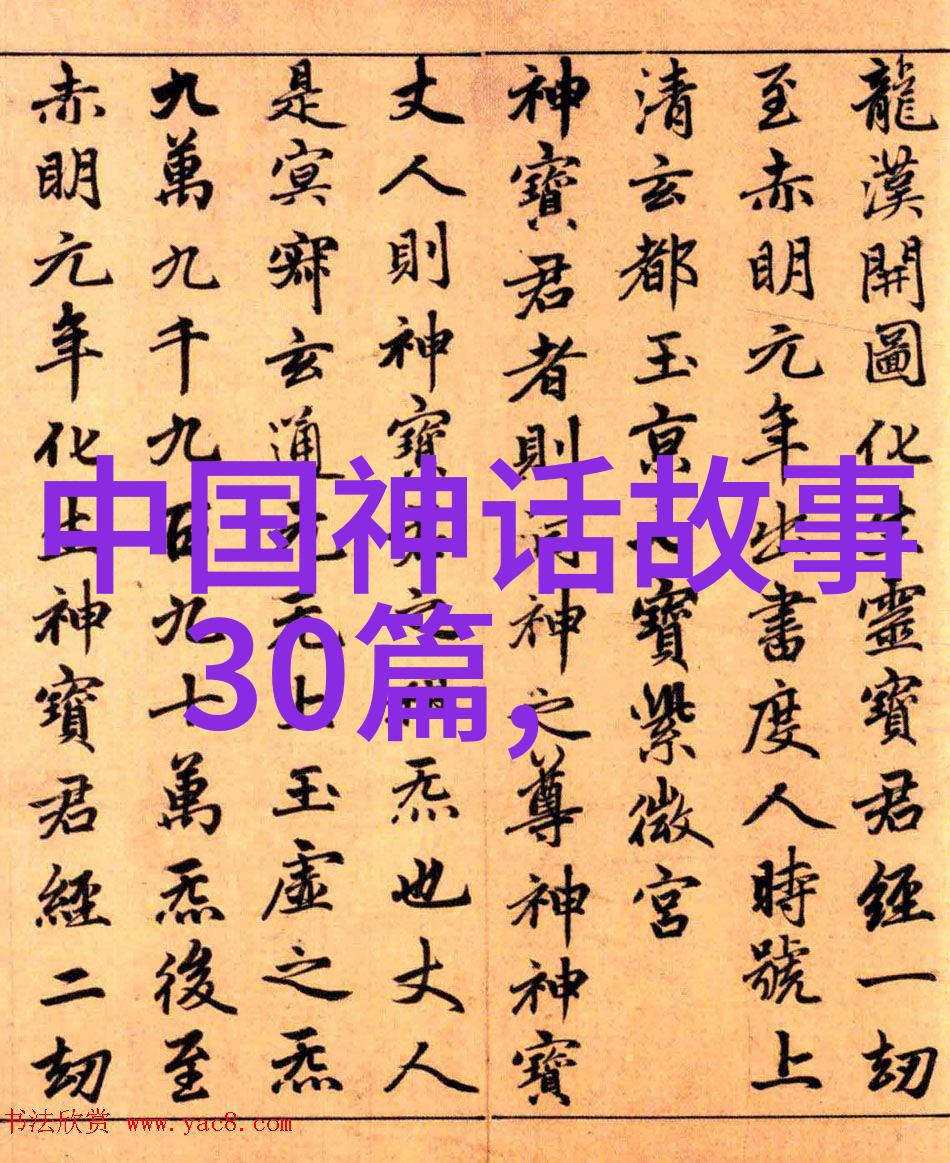 龍漢開圖化生靈寶君經一劫
至赤明元年出書度人時號上
清玄都玉京七寶紫微宮
神寶君者則洞神之尊神神寶
丈人則神寶君之祖炁也丈人
是冥寂玄通元无上玉虛之炁
九萬九千九百九十萬炁後至
赤明元年化生神寶君經二劫
中国神话故事
30篇，
书法欣赏 www.yac8.com